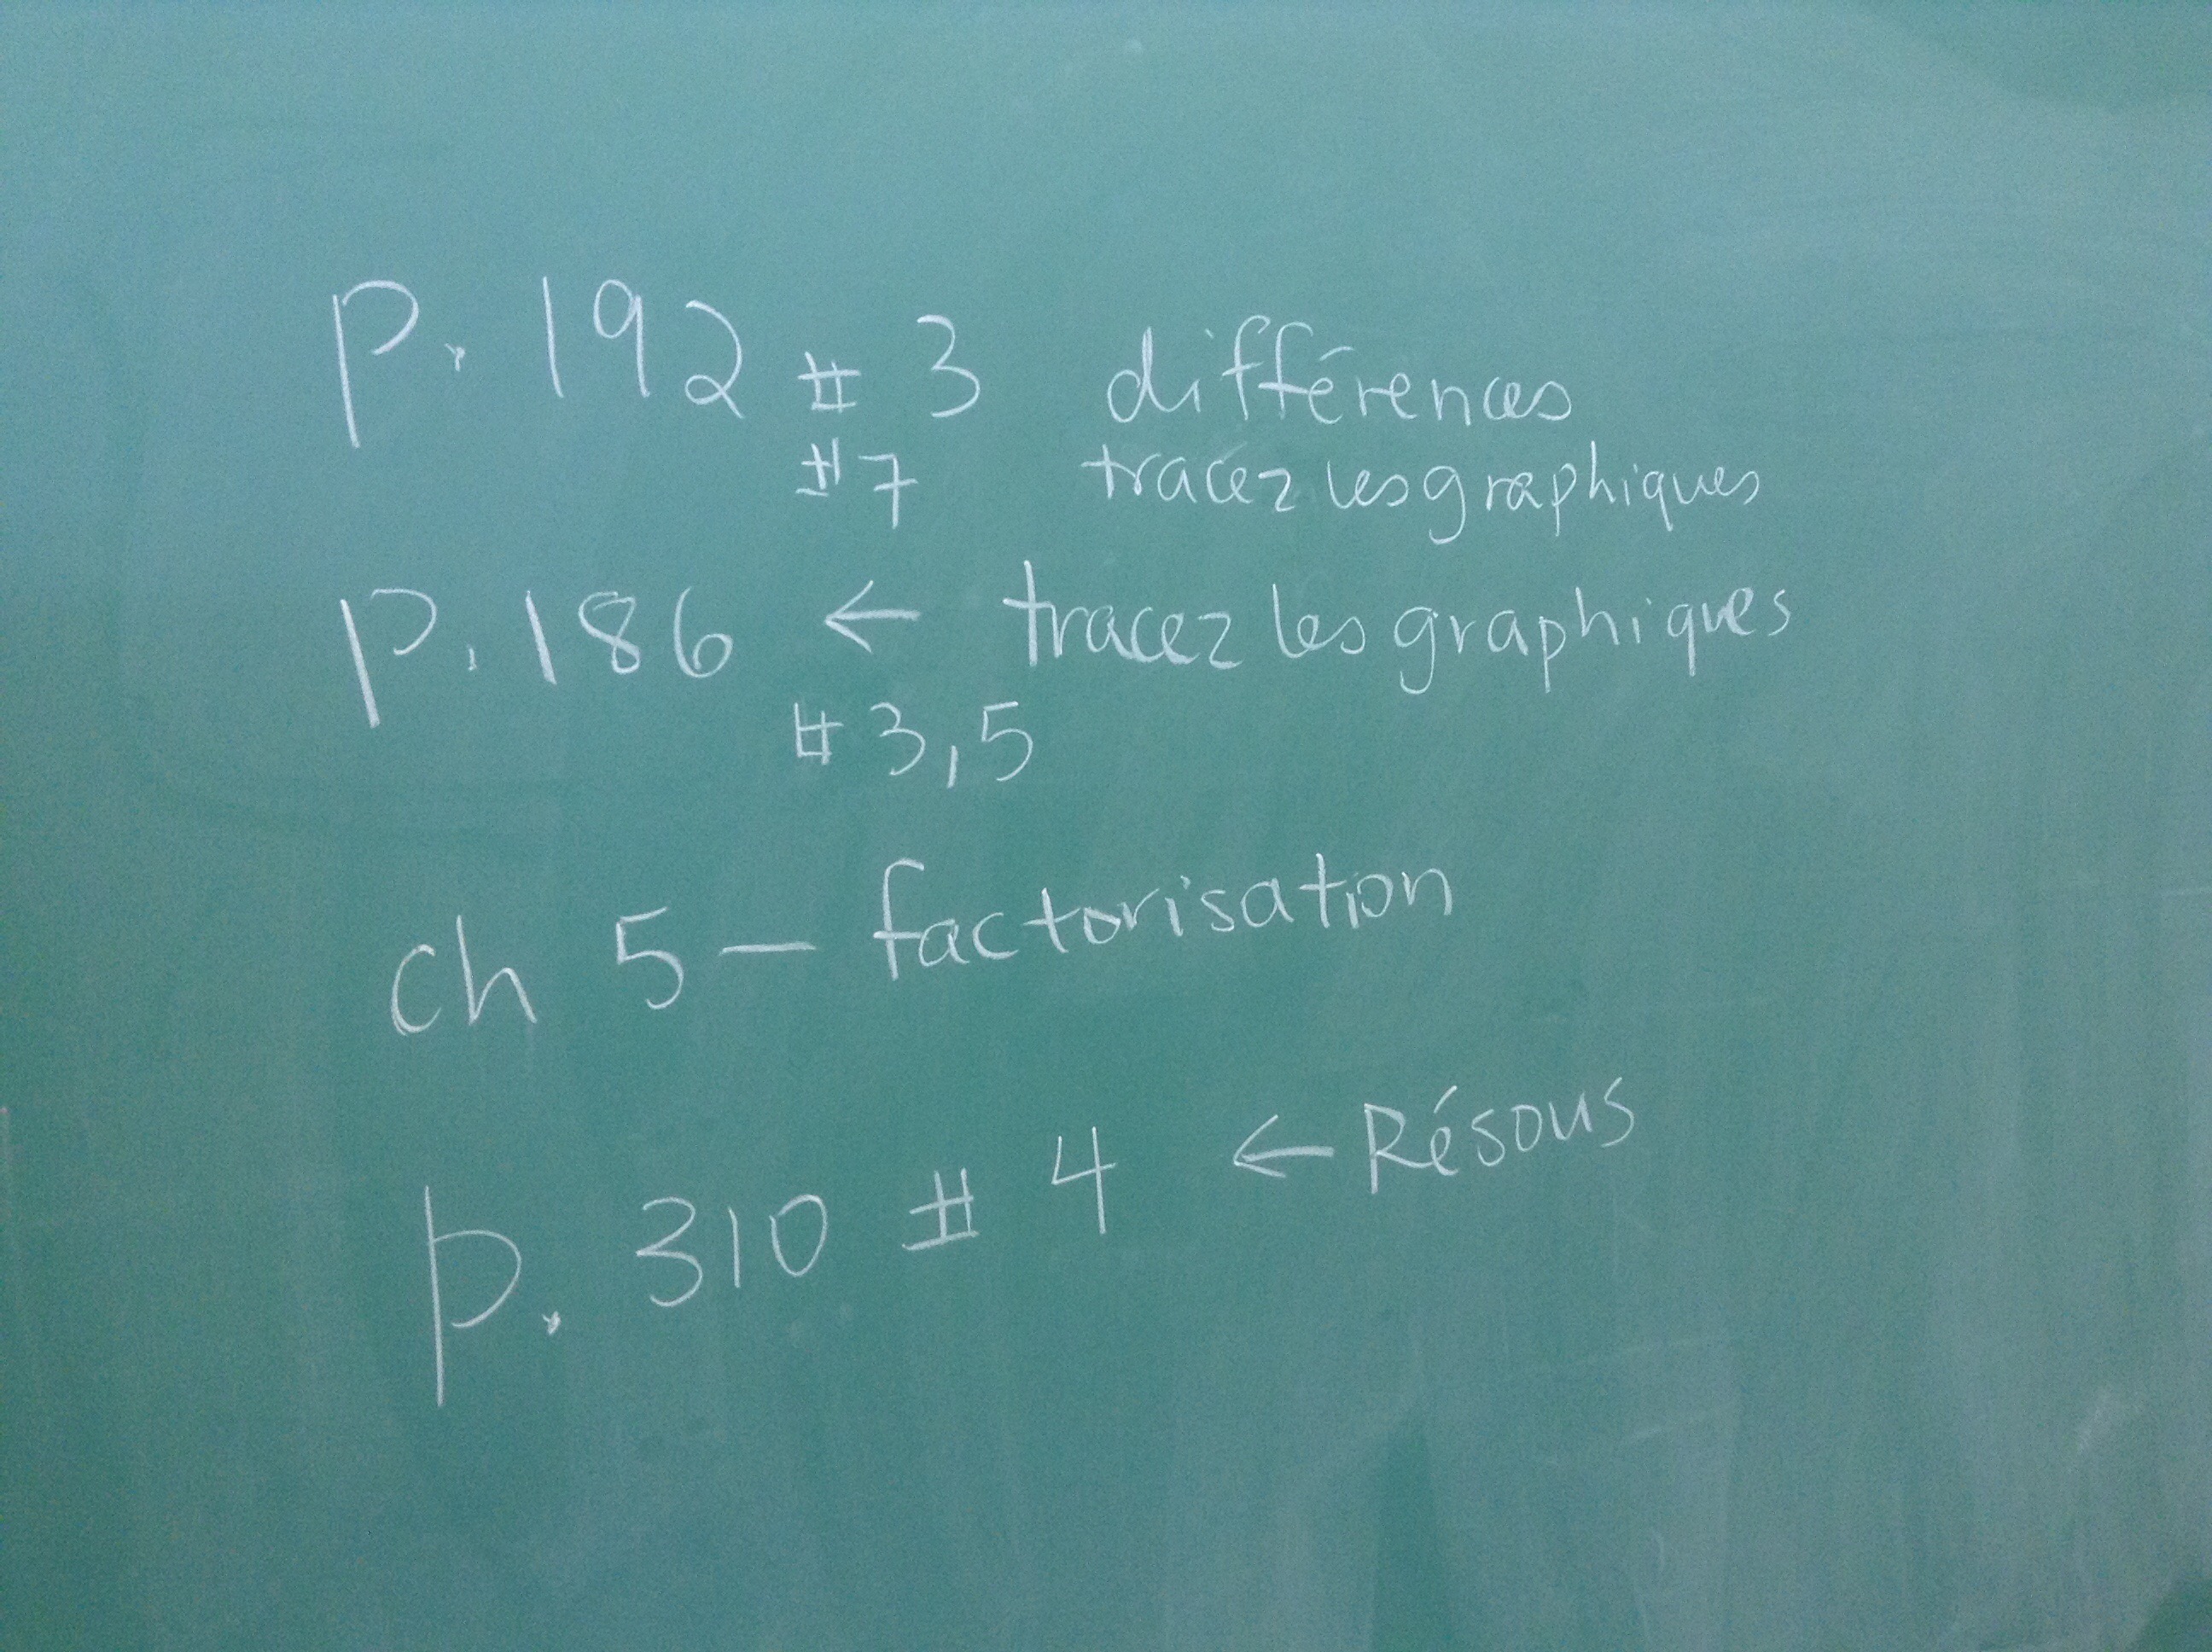 p. 192 # 3 différences
#7 tracez les graphiques
p. 186 ← tracez les graphiques
# 3,5
ch 5 — factorisation
p. 310 # 4 ← Résous